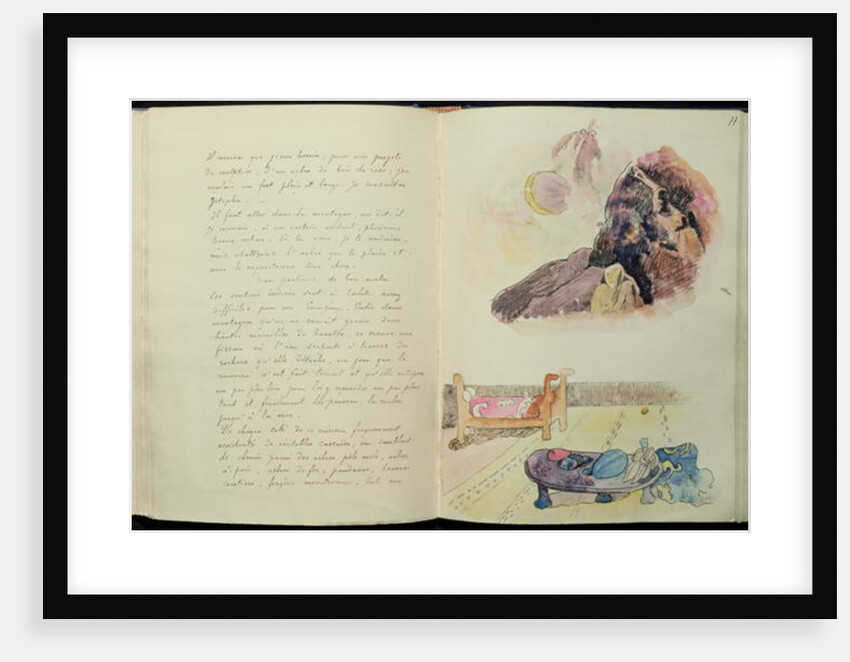 Il aurea que j'eus besoin, pour mes projets
de sculpture, d'un arbre de bois de rose; j'en
voulais un fort plein et large. Je consultai
Jotépha.
Il faut aller dans la montagne, me dit-il.
Je connais, à un certain endroit, plusieurs
beaux arbres. Si tu veux, je te conduirai,
nous abattrons l'arbre qui te plaira et
nous le rapporterons tous deux.
Nous partîmes de bon matin
Les sentiers indiens sont à Tahiti assez
difficiles pour un Européen. Entre deux
montagnes qu'on ne saurait gravir deux
hautes murailles de basalte, se creuse une
fissure où l'eau serpente à travers des
rochers qu'elle détache, un jour que le
ruisseau s'est fait torrent et qu'elle entrepose
un peu plus loin pour les y reprendre un peu plus
tard et finalement les pousser, les rouler
jusqu'à la mer.
De chaque coté de ce ruisseau fréquemment
accidenté de véritables cascades, un semblant
de chemin parmi des arbres pêle mêle, arbres
à pain, arbres de fer, pandanus, bouraos
cocotiers, fougères monstrueuses, tout une